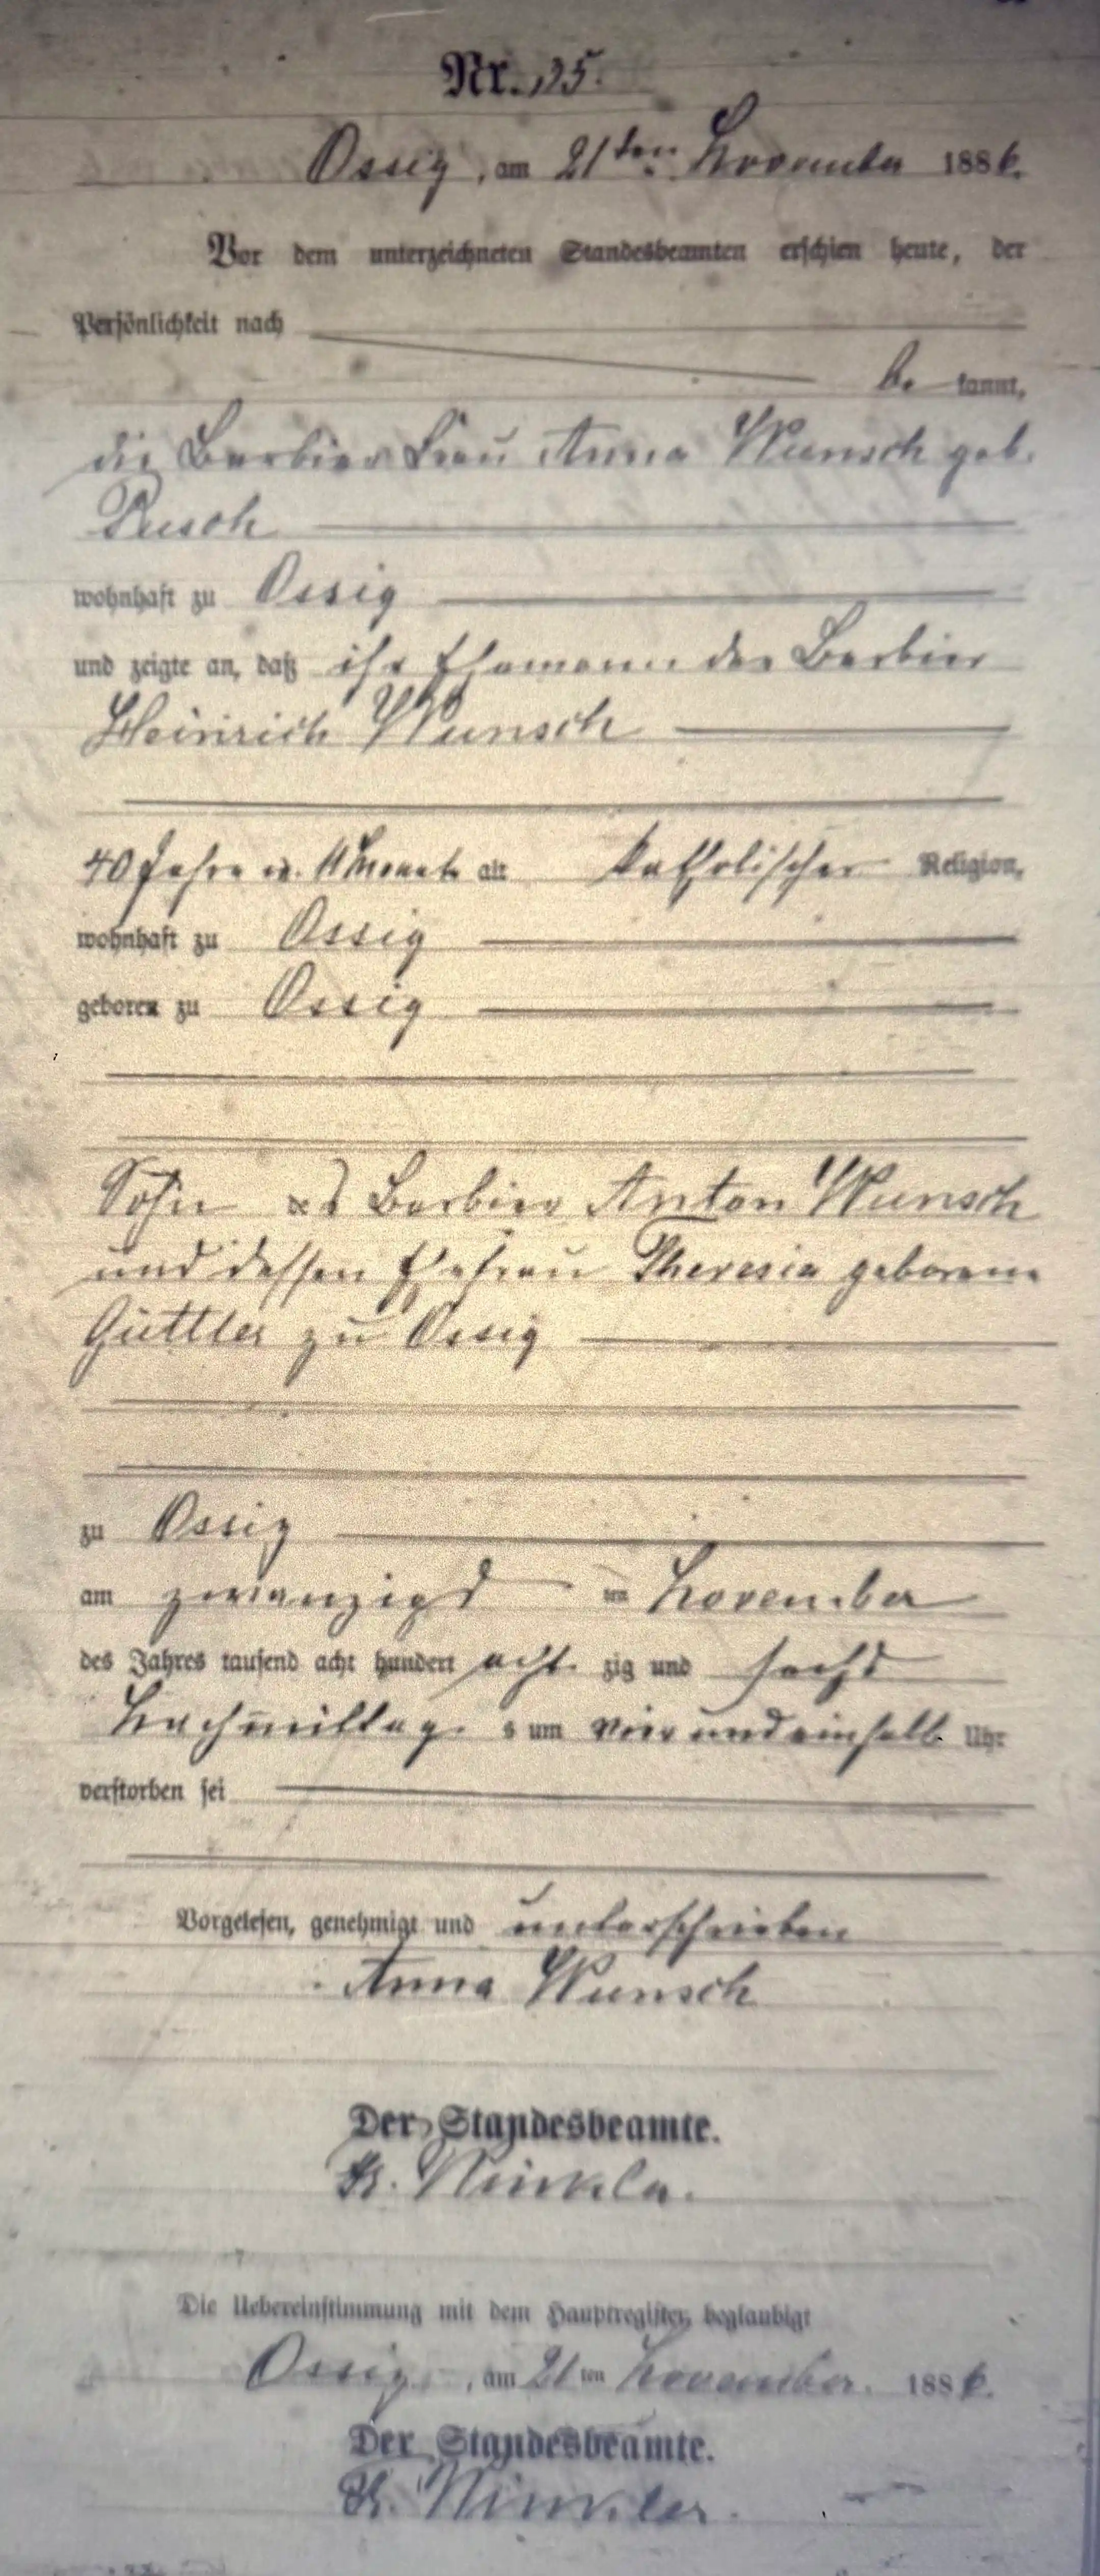 Nr. 35.
Ossig, am 21ten November 1886.
Vor dem unterzeichneten Standesbeamten erschien heute, der
Persönlichkeit nach
be kannt,
die Barbier Frau Anna Wunsch geb.
Pusch
wohnhaft zu Ossig
und zeigte an, daß ihr Ehemann der Barbier
Heinrich Wunsch
40 Jahre u. 11 Monate alt katholischer Religion,
wohnhaft zu Ossig
geboren zu Ossig
Sohn des Barbier Anton Wunsch
und dessen Ehefrau Theresia geborene
Güttler zu Ossig
zu Ossig
am zwanzigst ten November
des Jahres tausend acht hundert acht zig und sechs
Nachmittag s um vier und einhalb Uhr
verstorben sei
Vorgelesen, genehmigt und unterschrieben
Anna Wunsch
Der Standesbeamte.
Winkler.
Die Uebereinstimmung mit dem Hauptregister beglaubigt
Ossig, am 21 ten November. 1886.
Der Standesbeamte.
Winkler.